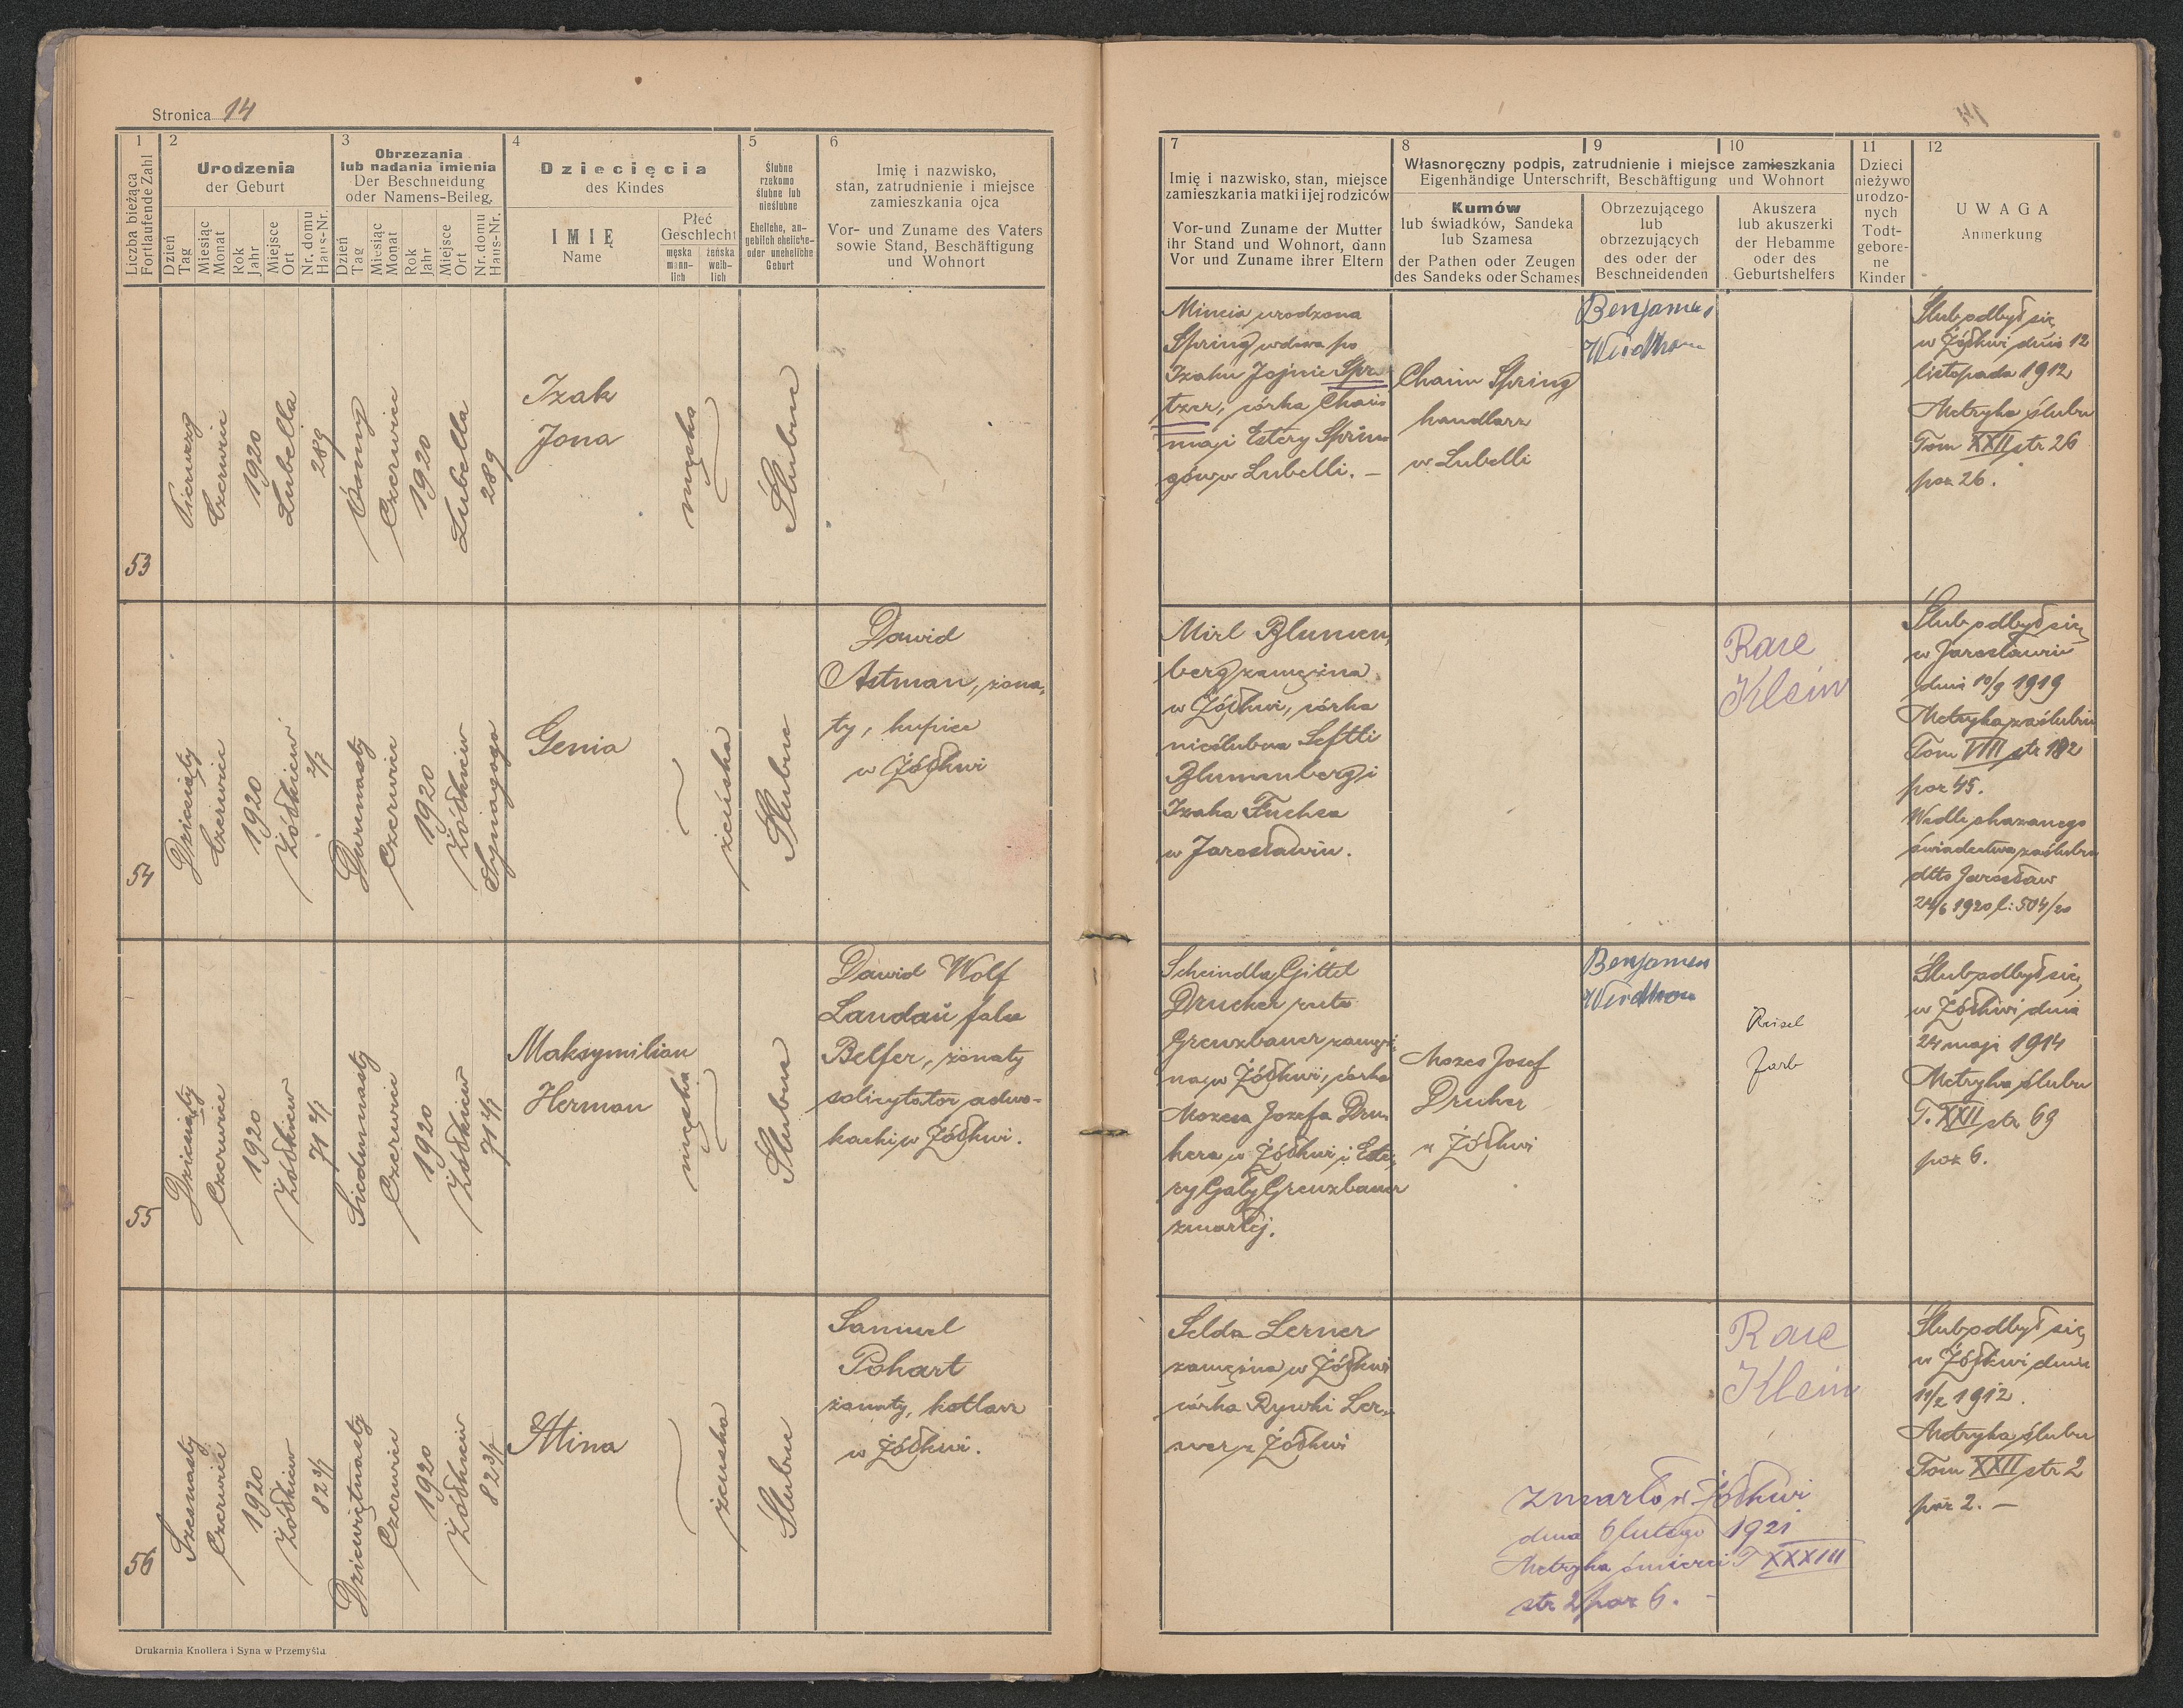 Stronica 14
1
Liczba bieżąca
Fortlaufende Zahl
2
Urodzenia
der Geburt
Dzień
Tag
Miesiąc
Monat
Rok
Jahr
Miejsce
Ort
Nr. domu
Haus-Nr.
3
Obrzezania
lub nadania imienia
Der Beschneidung
oder Namens-Beileg.
Dzień
Tag
Miesiąc
Monat
Rok
Jahr
Miejsce
Ort
Nr. domu
Haus-Nr.
4
Dziecięcia
des Kindes
IMIĘ
Name
Płeć
Geschlecht
męska
männ-
lich
żeńska
weib-
lich
5
Ślubne
rzekomo
ślubne lub
nieślubne
Eheliche, an-
geblich eheliche-
oder uneheliche
Geburt
6
Imię i nazwisko,
stan, zatrudnienie i miejsce
zamieszkania ojca
Vor- und Zuname des Vaters
sowie Stand, Beschäftigung
und Wohnort
7
Imię i nazwisko, stan, miejsce
zamieszkania matki i jej rodziców
Vor- und Zuname der Mutter
ihr Stand und Wohnort, dann
Vor und Zuname ihrer Eltern
8
9
10
Własnoręczny podpis, zatrudnienie i miejsce zamieszkania
Eigenhändige Unterschrift, Beschäftigung und Wohnort
Kumów
lub świadków, Sandeka
lub Szamesa
der Pathen oder Zeugen
des Sandeks oder Schames
Obrzezującego
lub
obrzezujących
des oder der
Beschneidenden
Akuszera
lub akuszerki
der Hebamme
oder des
Geburtshelfers
11
Dzieci
nieżywo
urodzo-
nych
Todt-
gebore-
ne
Kinder
12
UWAGA
Anmerkung
53
Pierwszy
Czerwiec
1920
Lubella
289
Ósmy
Czerwiec
1920
Lubella
289
Izak
Jona
męska
Ślubne
Mincia urodzona
Spring wdowa po
Izaku Jojnie Spri
tzer, córka Chai
ma i Estery Sprin
gów w Lubelli. —
Chaim Spring
handlarz
w Lubelli
Benjamen
Ślub odbył się
w Żółkwi dnia 12
listopada 1912
Metryka ślubu
Tom XXII str 26
poz 26.
54
Dziesiąty
Czerwiec
1920
Żółkiew
Dwunasty
Czerwiec
1920
Żółkiew
Synagoga
Genia
żeńska
Ślubne
Dawid
Astman, żona-
ty, kupiec
w Żółkwi
Mirl Blumen-
berg zamężna
w Żółkwi, córka
nieślubna Seftli
Blumenberg i
Izaka Fuchsa
w Jarosławiu.
Rase
Klein
Ślub odbył się
w Jarosławiu
dnia 10/9 1919
Metryka zaślubin
Tom VIII str 182
poz 45.
Wedle okazanego
świadectwa zaślubin
dtto Jarosław
24/6 1920 l: 504/20
55
Dziesiąty
Czerwiec
1920
Żółkiew
71 2/7
Siedemnasty
Czerwiec
1920
Żółkiew
71 2/7
Maksymilian
Herman
męska
Ślubne
Dawid Wolf
Landau false
Belfer, żonaty
solicytator adwo-
kacki w Żółkwi.
Scheindla Gittel
Drucker recte
Grenzbauer zamęż-
na w Żółkwi, córka
Mozesa Jozefa Dru-
kera w Żółkwi i Este-
ry Gaby Grenzbauer
zmarłej.
Mozes Josef
Druker
w Żółkwi
Benjamen
Reisel
Farb
Ślub odbył się
w Żółkwi dnia
24 maja 1914
Metryka ślubu
T. XXII str 69
poz 6.
56
Szesnasty
Czerwiec
1920
Żółkiew
82 3/7
Dziewiętnasty
Czerwiec
1920
Żółkiew
82 3/7
Mina
żeńska
Ślubne
Samuel
Pohart
żonaty, kotlarz
w Żółkwi.
Selda Lerner
zamężna w Żółkwi
córka Rywki Ler-
ner z Żółkwi
Rase
Klein
zmarła w Żółkwi
dnia 6 lutego 1921
Metryka śmierci T XXXIII
str 2 poz 6. —
Ślub odbył się
w Żółkwi dnia
11/2 1912.
Metryka ślubu
Tom XXII str 2
poz 2. —
Drukarnia Knollera i Syna w Przemyślu